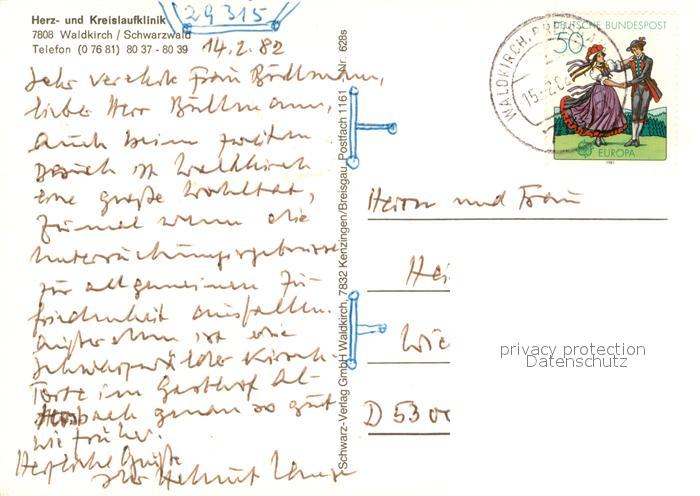 29315
Herz- und Kreislaufklinik
7808 Waldkirch / Schwarzwald
Telefon (0 76 81) 80 37 - 80 39
14.2.82
Sehr verehrte Frau
lieber Herr
auch beim zweiten
Besuch ist Waldkirch
eine große Wohltat,
zumal wenn die
Untersuchungsergebnisse
zur allgemeinen Zu-
friedenheit ausfallen.
Außerdem ist die
Schwarzwälder Kirsch-
Torte im Gasthof
genau so gut
wie früher.
Herzliche Grüße
Ihr Helmut
Schwarz-Verlag GmbH Waldkirch, 7832 Kenzingen/Breisgau, Postfach 1161 Nr. 628s
WALDKIRCH, BREISGAU
15.-2.82
DEUTSCHE BUNDESPOST
50
EUROPA
1981
Herrn und Frau
Hei
Wie
D 5300
privacy protection
Datenschutz